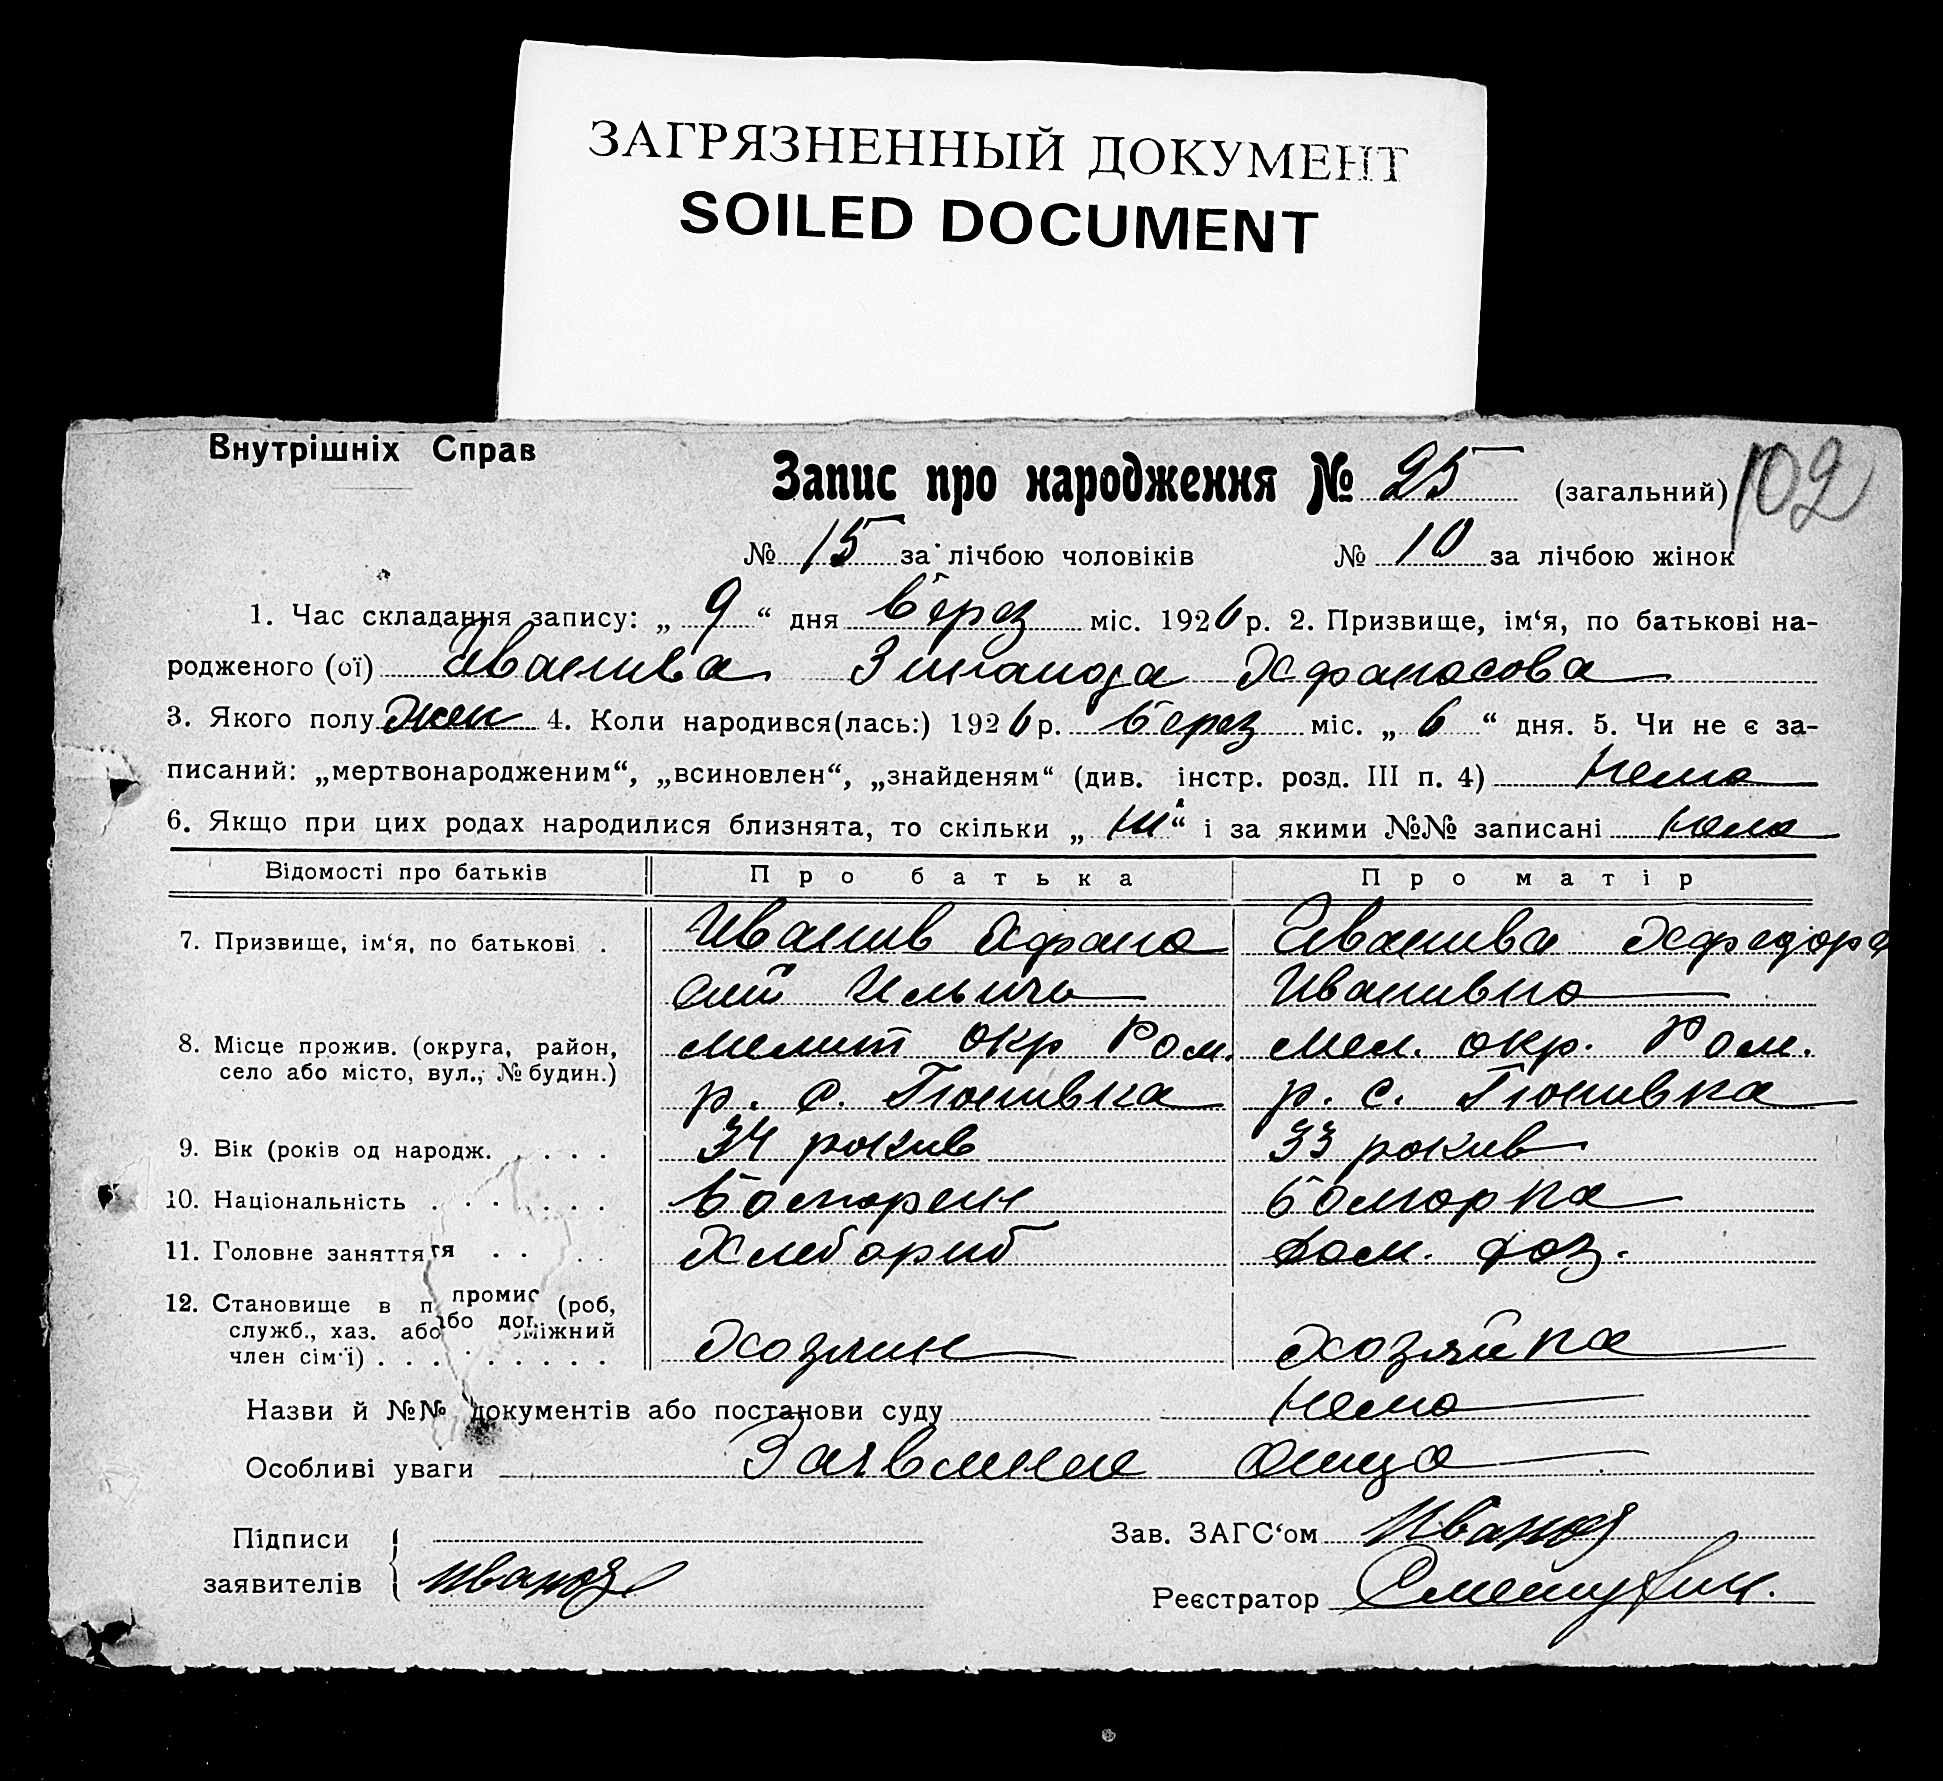 ЗАГРЯЗНЕННЫЙ ДОКУМЕНТ
SOILED DOCUMENT
Внутрішніх Справ
Запис про народження № 25 (загальний) 102
№ 15 за лічбою чоловіків № 10 за лічбою жінок
1. Час складання запису: „ 9 “ дня берез міс. 1926 р. 2. Призвище, ім‘я, по батькові на-
родженого (ої) Иванива Зинаида Афанасова
3. Якого полу жен 4. Коли народився(лась:) 1926 р. берез міс. „ 6 “ дня. 5. Чи не є за-
писаний: „мертвонародженим“, „всиновлен“, „знайденям“ (див. інстр. розд. III п. 4) Нема
6. Якщо при цих родах народилися близнята, то скільки „ “ і за якими №№ записані нема
Відомості про батьків Про батька Про матір
7. Призвище, ім‘я, по батькові . Иванив Афана Иванива
сий Ильичь Иванивна
8. Місце прожив. (округа, район, Мелит окр Ром. Мел. окр. Ром.
село або місто, вул., № будин.) р. с. Гюнивка р. с. Гюнивка
9. Вік (років од народж. . . . . 34 рокив 33 рокив
10. Національність . . . . . . . Болгорин Болгорка
11. Головне заняття . . . . Хлебориб Дом. хоз.
12. Становище в промис (роб,
служб., хаз. або або дог. зміжний
член сім‘ї) . . . . . . . . . . Хозяин Хозяйка
Назви й №№ документів або постанови суду Нема
Особливі уваги Заявление отца
Підписи Зав. ЗАГС‘ом Иванов
заявителів Иванов Реєстратор